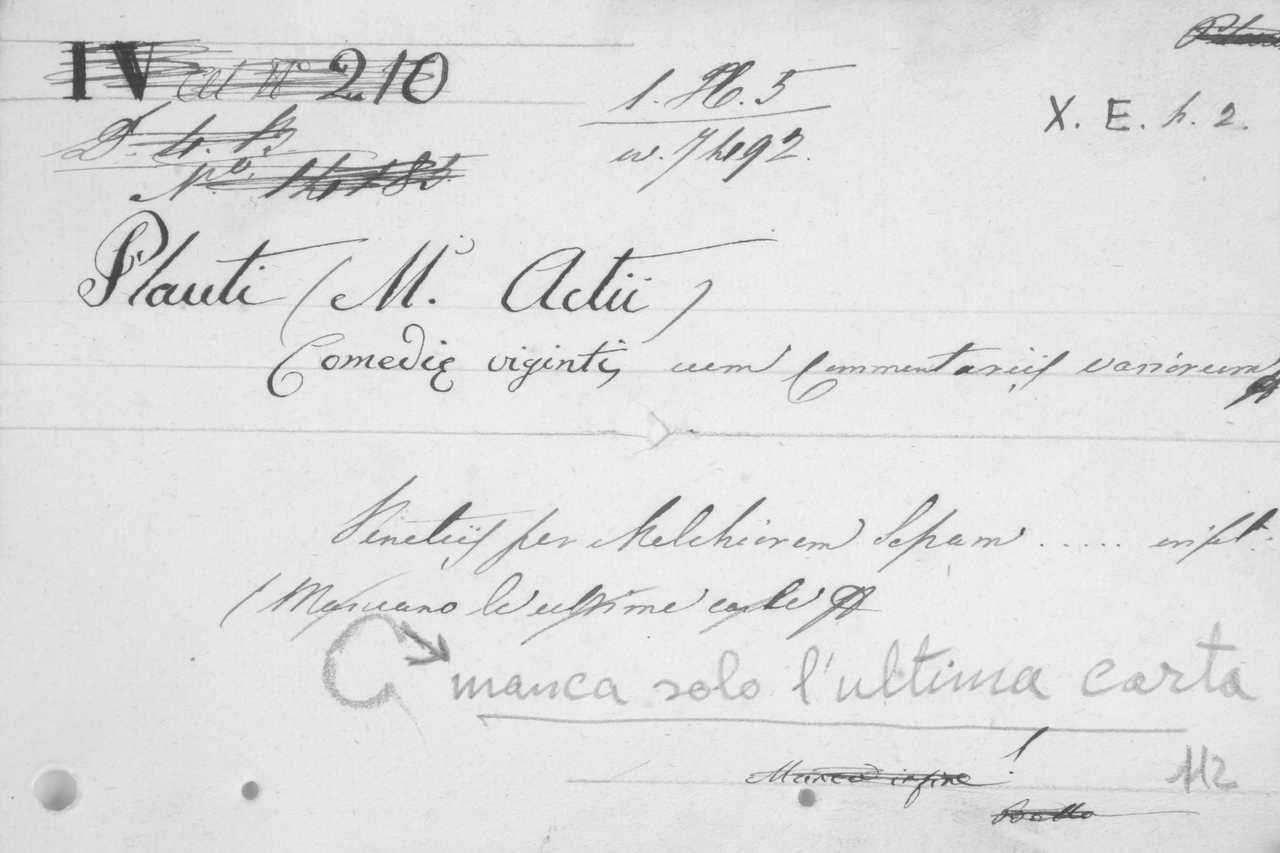 IV 210
1. H. 5
X. E. h. 2.
D. 4. B
N.º
Plauti (M. Actii)
Comedię viginti, cum Commentariis variorum
Venetiis per Melchiorem Sessam ..... in fol.
(Mancano le ultime carte
manca solo l'ultima carta
Manca infine
112
Bollo